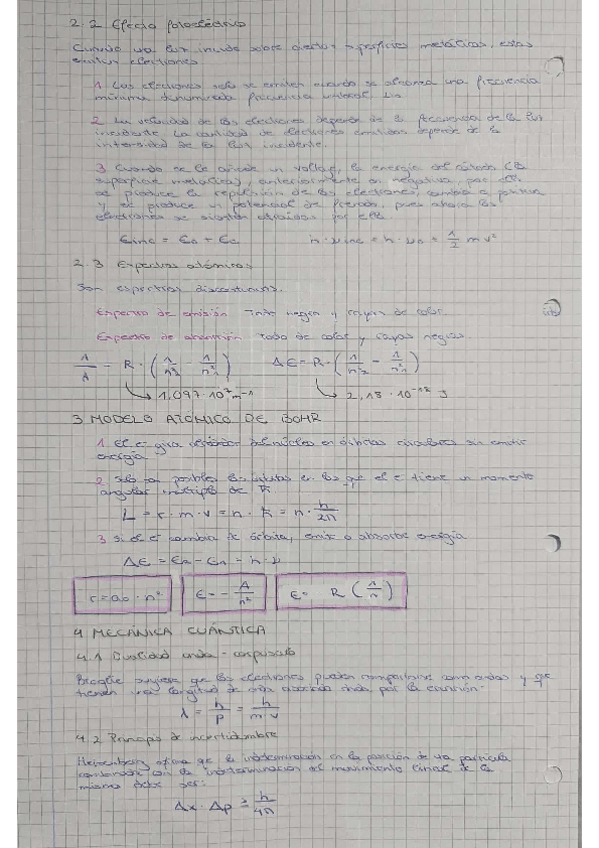 2.2 Efecto fotoeléctrico
Cuando una luz incide sobre ciertas superficies metálicas, estas
emiten electrones.
1 Los electrones solo se emiten cuando se alcanza una frecuencia
mínima denominada frecuencia umbral
2 La velocidad de los electrones depende de la frecuencia de la luz
incidente. La cantidad de electrones emitidos depende de la
intensidad de la luz incidente.
3 Cuando se le añade un voltaje, la energía del cátodo (la
superficie metálica), anteriormente en negativa, por
se produce la repulsión de los electrones, cambia a positiva
y se produce un potencial de frenado, pues ahora los
electrones se sienten atraídos por ella
Einc = E0 + Ec h·νinc = h·ν0 = 1/2 m v²
2.3 Espectros atómicos
Son espectros discontinuos.
Espectro de emisión Todo negro y rayas de color.
Espectro de absorción Todo de color y rayas negras.
1/λ = R · (1/n² − 1/n²₁) ΔE = R · (1/n² − 1/n²₁)
1,097·10⁷ m⁻¹ 2,18·10⁻¹⁸ J
3 MODELO ATÓMICO DE BOHR
1 El e⁻ gira alrededor del núcleo en órbitas circulares sin emitir
energía
2 solo son posibles las órbitas en las que el e⁻ tiene un momento
angular múltiplo de ħ
L = r · m · v = n · ħ = n · h/2π
3 si el e⁻ cambia de órbita, emite o absorbe energía
ΔE = E₂ − E₁ = h · ν
r = a₀ · n² E = − A/n² E = R (1/n)
4 MECÁNICA CUÁNTICA
4.1 Dualidad onda - corpúsculo
Broglie sugiere que los electrones pueden comportarse como ondas y que
tienen una longitud de onda asociada dada por la ecuación:
λ = h/p = h/m·v
4.2 Principio de incertidumbre
Heisenberg afirma que la indeterminación en la posición de una partícula
combinada con la indeterminación del movimiento lineal de la
misma debe ser:
Δx · Δp ≥ h/4π